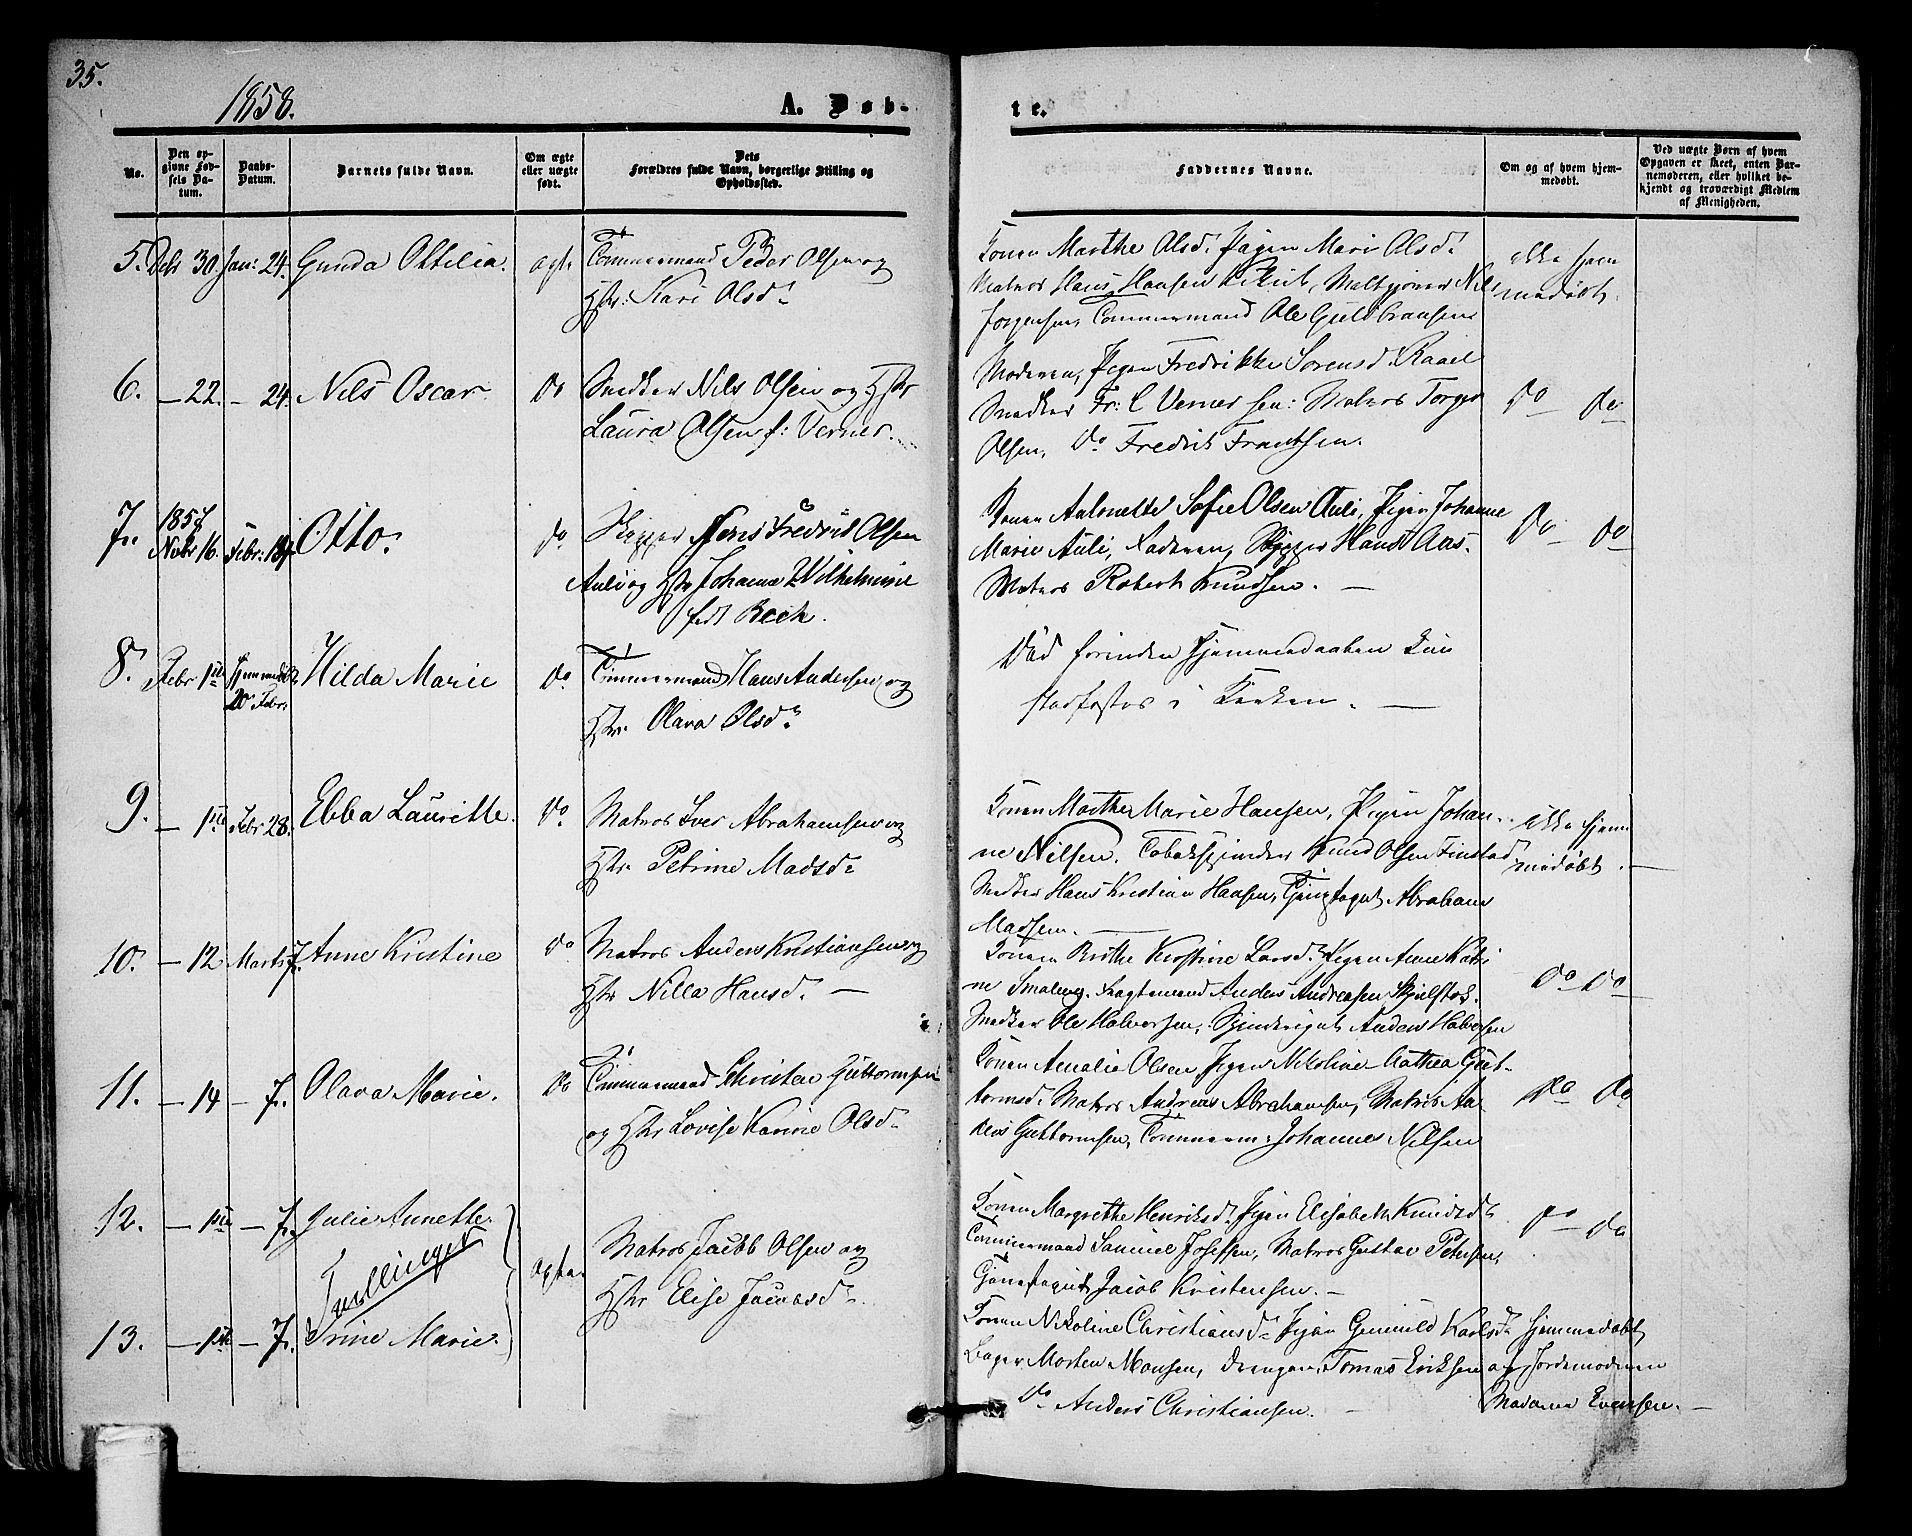 35.
1858.
A. Døb-
te.
No.
Den op-
givne Fød-
sels Da-
tum.
Daabs-
Datum.
Barnets fulde Navn.
Om ægte
eller uægte
født.
Dets
Forældres fulde Navn, borgerlige Stilling og
Opholdssted.
Faddernes Navne.
Om og af hvem hjem-
medøbt.
Ved uægte Børn af hvem
Opgaven er skeet, enten Bar-
nemoderen, eller hvilket be-
kjendt og troværdigt Medlem
af Menigheden.
5. Debr 30. Jan: 24. Gunda Ottilia. ægte Tømmermand Peder Olsen og
Hstr: Kari Olsd.
Konen Marthe Olsd. Pigen Mari Olsd.
Matros Hans Hansen, Maltgjører Nil
Jørgensen, Tømmermand Ole Guldbransen
ikke hjem
medøbt.
6. — 22. — 24. Nils Oscar. Do Snedker Nils Olsen og Hstr
Laura Olsen f: Verner.
Moderen, Pigen Fredrikke Sørensd.
Snedker Fr: C Verner sen: Matros Torger
Olsen, Do Fredrik Frantsen.
Do Do
7. 1857
Novbr 16. Febr: Otto. Do Skipper Jens Fredrik Olsen
Auli og Hstr Johanne Wilhelmine
født Bech.
Konen Antonette Sofie Olsen Auli, Pigen Johanne
Marie Auli, Faderen, Skipper Hans Aas.
Matros Robert Knudsen. —
Do Do
8. Febr 1ste Hjemmedøbt
20 Febr. Hilda Marie Do. Tømmermand Hans Andersen og
Hstr. Olava Olsd.
Død forinden Hjemmedaaben kun
stadfæstes i Kirken. —
9. — 1ste Febr 28. Ebba Lauritte. Do. Matros Iver Abrahamsen og
Hstr Petrine Madsd.
Konen Marthe Marie Hansen, Pigen Johan-
ne Nilsen. Tobakspinder Knud Olsen Finstad
Snedker Hans Kristian Hansen, Abraham
Madsen. —
ikke hjem
medøbt. —
10. — 12 Marts 7. Anne Kristine Do Matros Anders Kristiansen og
Hstr Nilla Hansd. —
Konen Birthe Kirstine Larsd. Pigen Anne Katri
ne Smaleng. Fragtemand Anders Andreasen Skjelstok.
Snedker Ole Halvorsen, Anders Halvorsen
Do Do
11. — 14 — 7. Olava Marie. Do Tømmermand Christen Guttormsen
og Hstr Lovise Karine Olsd.
Konen Amalie Olsen Pigen Nikoline Mathea Gut-
tormsd. Matros Andreas Abrahamsen, Matros An
ders Guttormsen, Tømmerm: Johannes Nilsen
Do Do
12. — 1ste — 7. Julie Annette.
Tvillinger
ægte. Matros Jacob Olsen og
Hstr Elise Jacobsd.
Konen Margrethe Henriksd. Pigen Elisabeth Knudsd.
Tømmermand Samuel Joseffsen, Matros Gustav Petersen,
Jacob Kristensen. —
Do Do
13. — 1ste — 7. Trine Marie.
Konen Nikoline Christiansd. Pigen Gunnild Karlsd.
Bager Morten Monsen, Drengen Tomas Eriksen
Do Anders Christiansen. —
Hjemmedøbt
af Jordemoderen
Madame Evensen. —